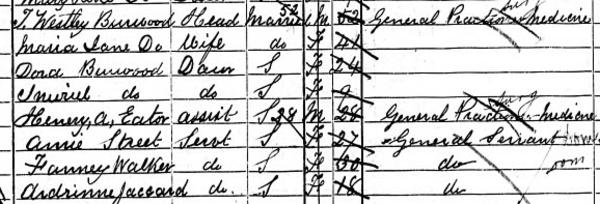 T. Westley Burwood Head Married 52 M 52 General Practioner Medicine
Maria Jane Do Wife do F 41
Dora Burwood Daur S F 24
Muriel do do S F 9
Henery, A, Eator assist S 28 M 28 General Practioner Medicine
Annie Street Servt S F 27 General Servant
Fanney Walker do S F 30 do dom
Ardrinne Jaccard do. S F 18 do